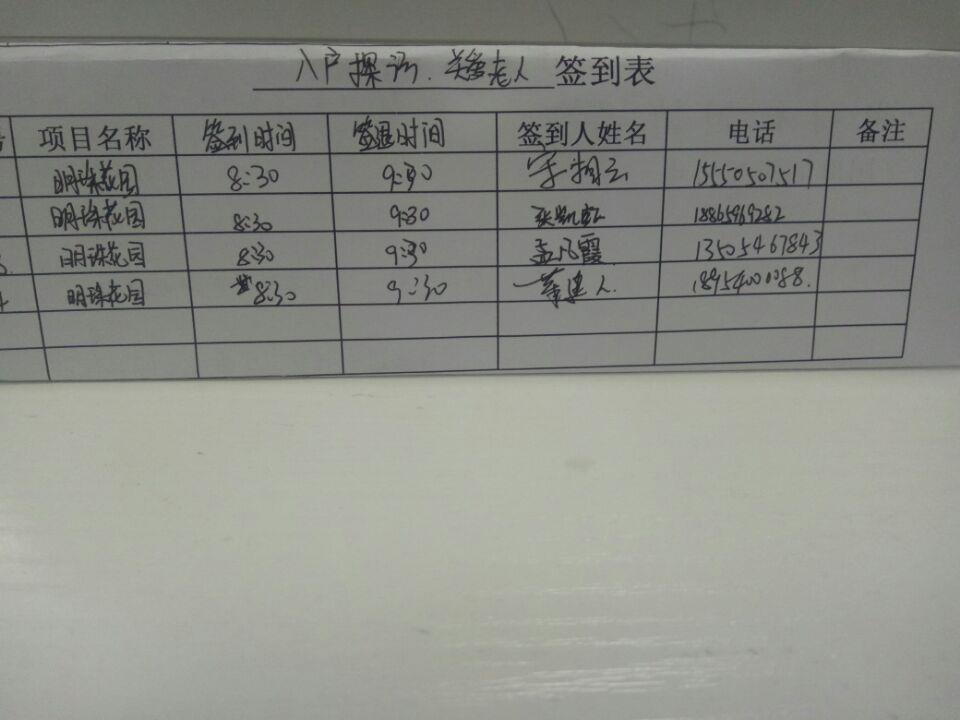 入户探访.关爱老人 签到表
号 项目名称 签到时间 签退时间 签到人姓名 电话 备注
明珠花园 8:30 9:30 15550507517
明珠花园 8:30 9:30 18865969282
3. 明珠花园 8:30 9:30 孟凡霞 13505467843
4 明珠花园 8:30 9:30 18954000088.